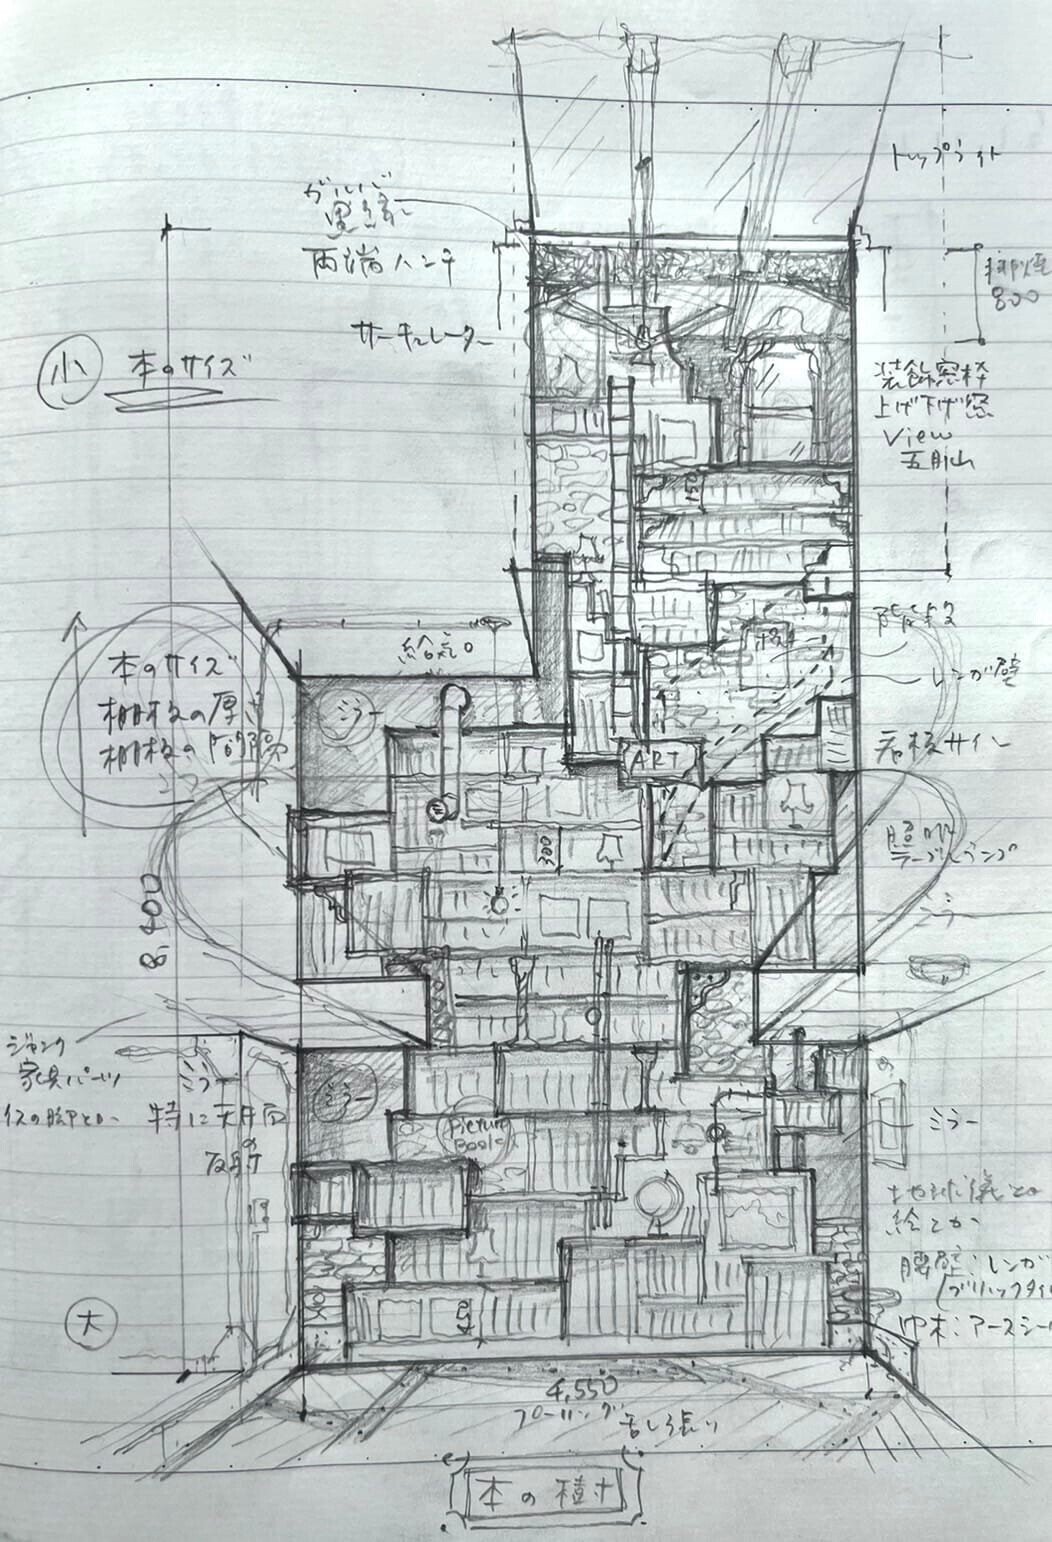 トップライト
両端ハンチ
排煙
800
サーキュレーター
小
本のサイズ
装飾窓枠
上げ下げ窓
View
五月山
150
給気口
レンガ壁
ミラー
本のサイズ
棚板の厚さ
棚板の間隔
看板サイン
ART
照明
テーブルランプ
300
8,900
ミラー
ジャンク
家具パーツ
イスの脚とか
ミラー
特に天井面
の
反射
ミラー
Picture
Book
ミラー
地球儀とか
絵とか
腰壁：レンガ
ブリックタイル
巾木：アースシー
大
450
4,550
フローリング
本の樹